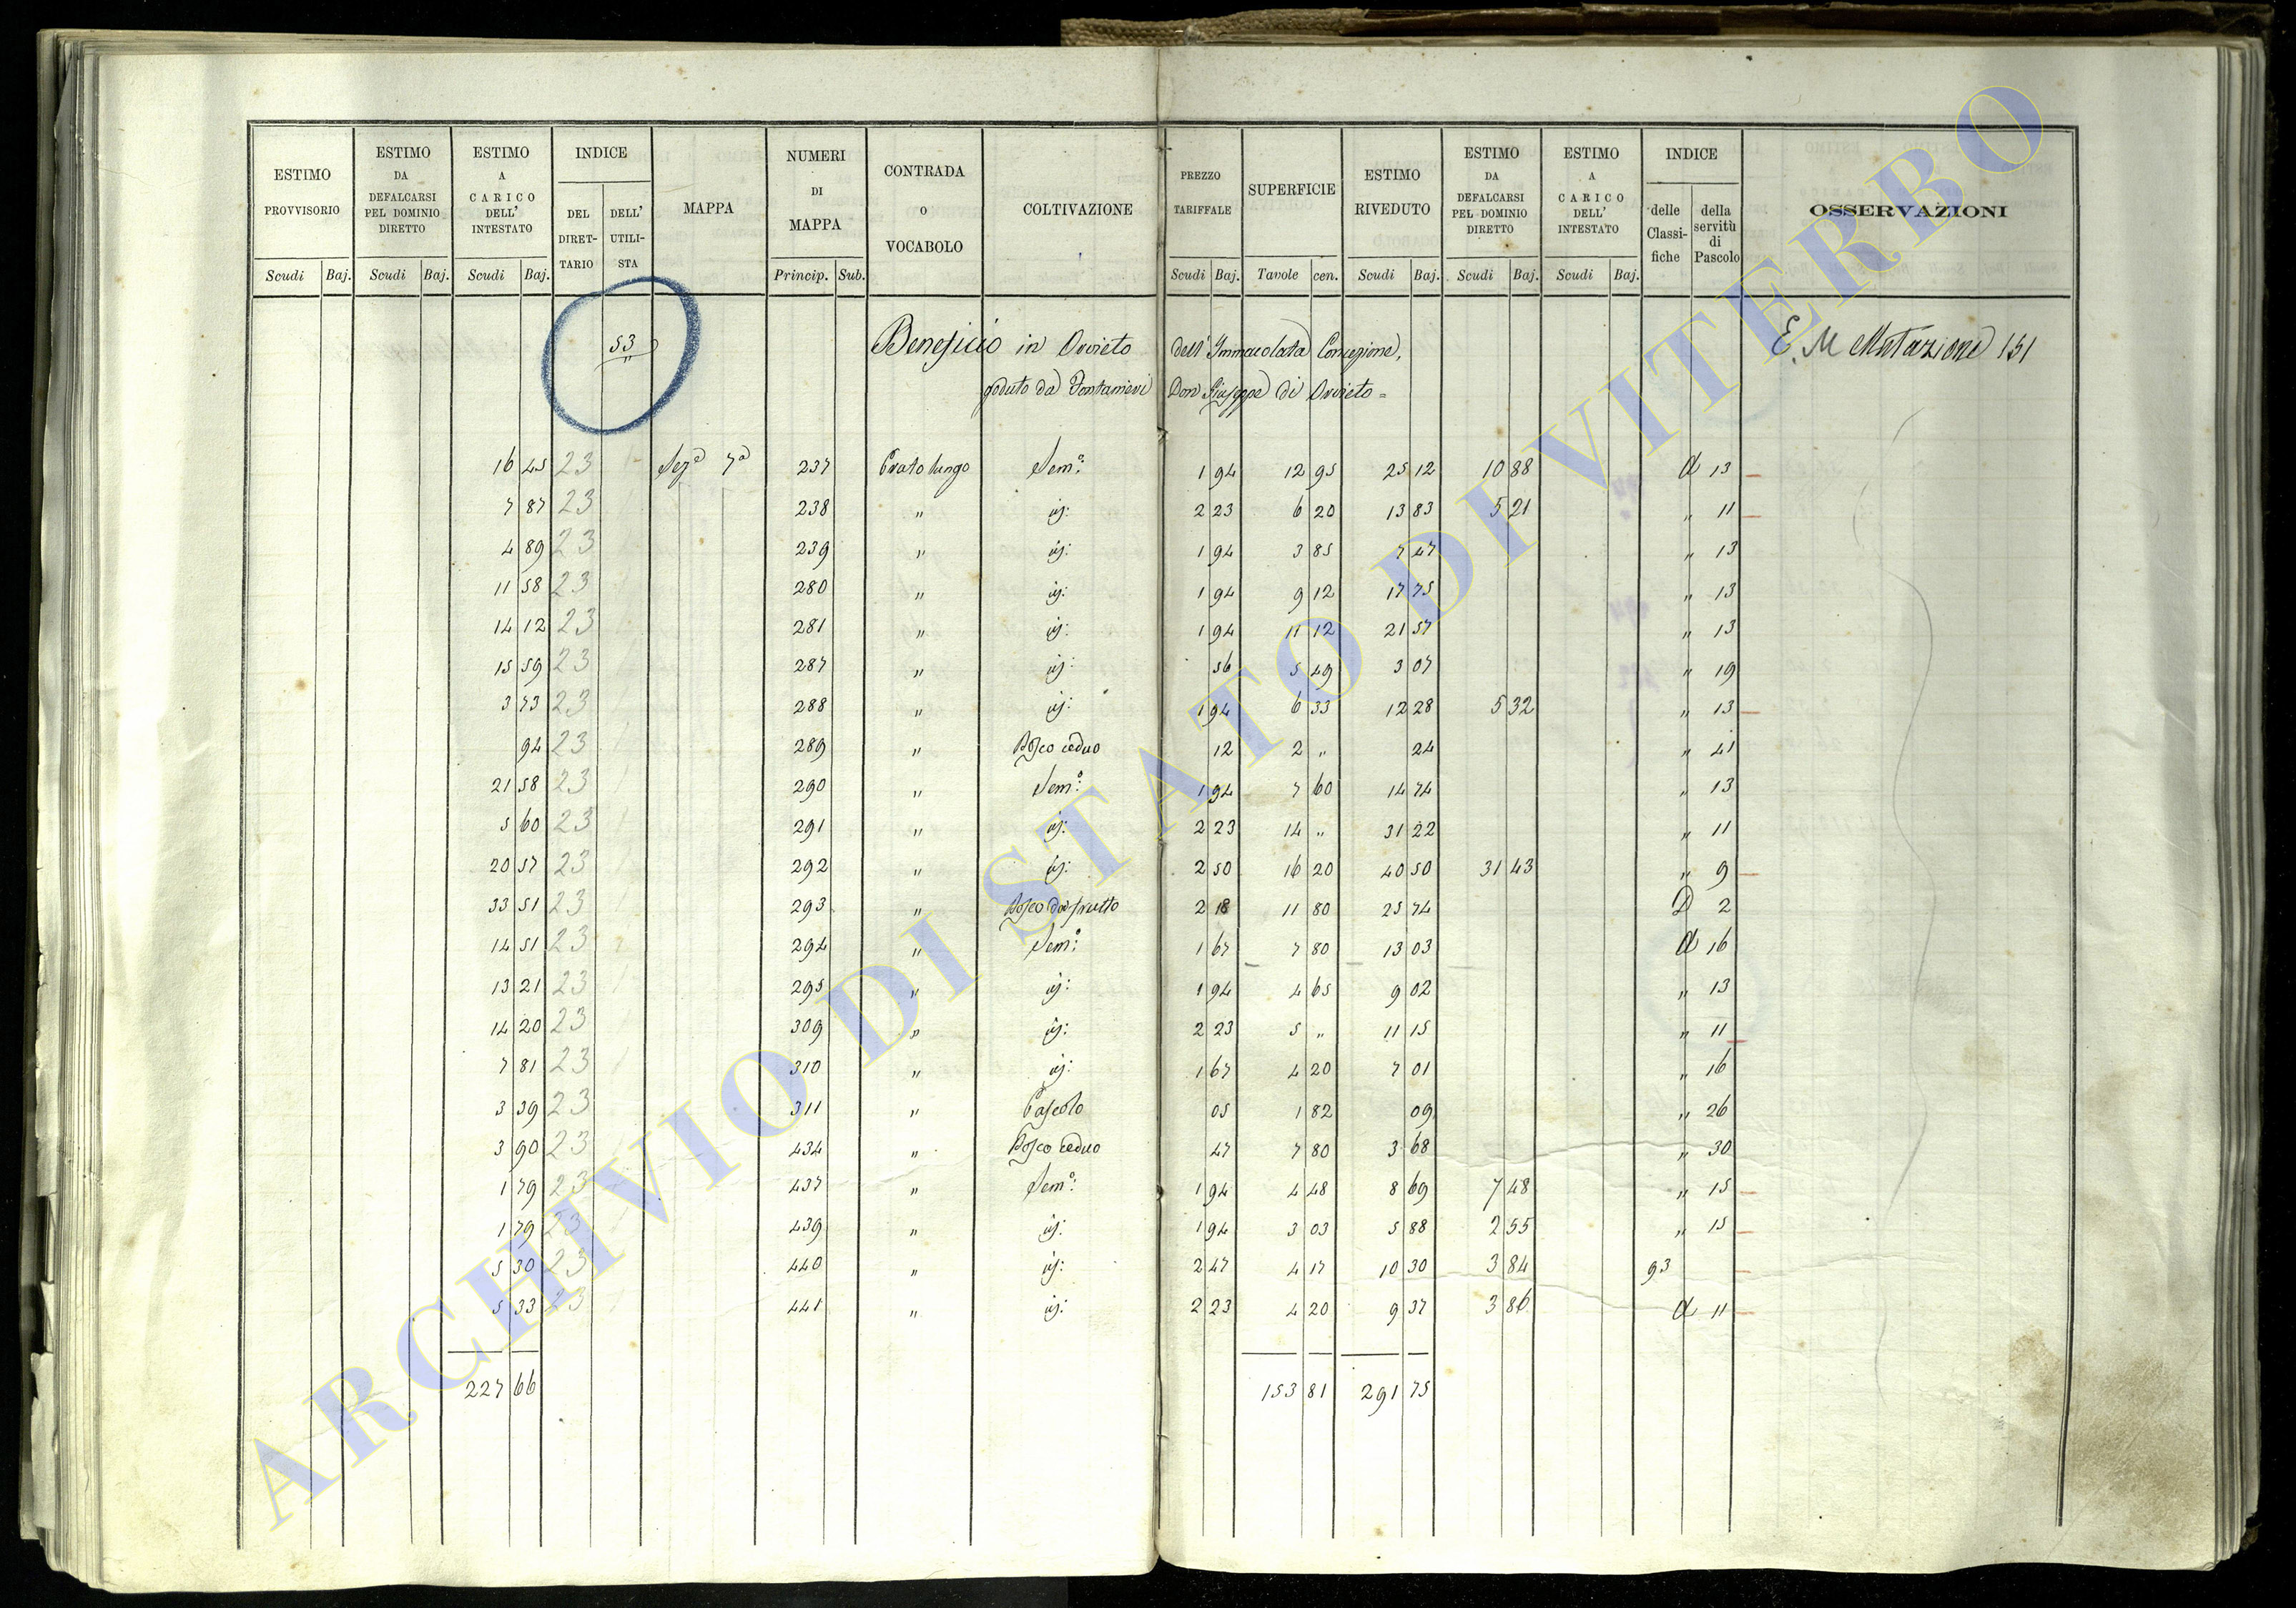 ESTIMO PROVVISORIO | ESTIMO DA DEFALCARSI PEL DOMINIO DIRETTO | ESTIMO A CARICO DELL' INTESTATO | INDICE DEL DIRETTARIO | DELL' UTILISTA | MAPPA | NUMERI DI MAPPA | CONTRADA O VOCABOLO | COLTIVAZIONE | PREZZO TARIFFALE | SUPERFICIE | ESTIMO RIVEDUTO | ESTIMO DA DEFALCARSI PEL DOMINIO DIRETTO | ESTIMO A CARICO DELL' INTESTATO | INDICE delle Classifiche | della servitù di Pascolo | OSSERVAZIONI
Scudi Baj. Scudi Baj. Scudi Baj. Princip. Sub. Scudi Baj. Tavole cen. Scudi Baj. Scudi Baj. Scudi Baj.
53 Beneficio in Orvieto dell' Immacolata Concezione, E. M Mutazione 151
goduto da Fontanieri Don Giuseppe di Orvieto =
16 45 23 Sez.e 7a 237 Prato lungo Sem.o 1 94 12 95 25 12 10 88 A 13
7 87 23 238 " id: 2 23 6 20 13 83 5 21 " 11
4 89 23 239 " id: 1 94 3 85 7 47 " 13
11 58 23 280 " id: 1 94 9 12 17 75 " 13
14 12 23 281 " id: 1 94 11 12 21 57 " 13
15 59 23 287 " id: 56 5 49 3 07 " 19
3 73 23 288 " id: 1 94 6 33 12 28 5 32 " 13
94 23 289 " Bosco ceduo 12 2 " 24 " 41
21 58 23 290 " Sem.o 1 94 7 60 14 74 " 13
5 60 23 291 " id: 2 23 14 " 31 22 " 11
20 57 23 292 " id: 2 50 16 20 40 50 31 43 " 9
33 51 23 293 " Bosco da frutto 2 18 11 80 25 74 D 2
14 51 23 294 " Sem.o 1 67 7 80 13 03 A 16
13 21 23 295 " id: 1 94 4 65 9 02 " 13
14 20 23 309 " id: 2 23 5 " 11 15 " 11
7 81 23 310 " id: 1 67 4 20 7 01 " 16
3 39 23 311 " Pascolo 05 1 82 09 " 26
3 90 23 434 " Bosco ceduo 47 7 80 3 68 " 30
1 79 23 437 " Sem.o 1 94 4 48 8 69 7 48 " 15
1 79 23 439 " id: 1 94 3 03 5 88 2 55 " 15
5 30 23 440 " id: 2 47 4 17 10 30 3 84 93
5 33 23 441 " id: 2 23 4 20 9 37 3 86 A 11
227 66 153 81 291 75
ARCHIVIO DI STATO DI VITERBO